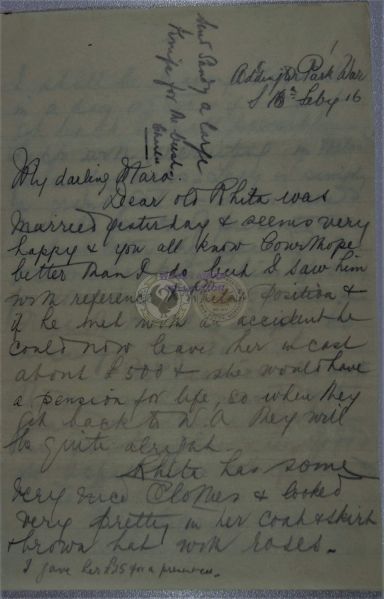 Send Sandy a large
Knife for the
Addington Park War
16
My darling Mara.
Dear old Rhita was
married yesterday & seems very
happy & you all know
better than I do but I saw him
with reference to position &
if he met with an accident he
could now leave her in cash
about £500 & she would have
a pension for life, so when they
get back to W.A they will
be quite alright.
Rhita has some
very nice Clothes & looked
very pretty in her coat & skirt
& brown hat with roses.
I gave her for a present.